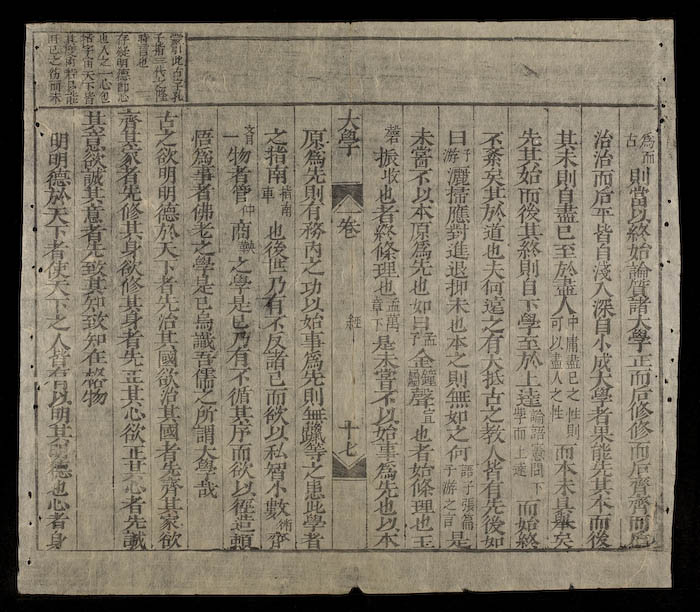 蒙引此古字孔
子指三代之隆
時言也
存疑明德即心
也人之一心包
括宇宙天下皆
則當以終始論質諸大學正而后修修而后齊齊而后
治治而后平皆自淺入深自小成大學者果能先其本而後
其末則自盡已至於盡人中庸盡已之性則可以盡人之性而本末具舉矣
先其始而後其終則自下學至於上達論語憲問下學而上達而始終
不紊矣其於道也夫何遠之有大抵古之教人皆有先後如
曰子游灑掃應對進退抑末也本之則無如之何語子張篇子游之言是
未嘗不以本原為先也如曰孟子金鐘鏞聲宣也者始條理也玉
磬振收也者終條理也孟萬章下是未嘗不以始事為先也以本
大學 卷一 經 十七
原為先則有務內之功以始事為先則無躐等之患此學者
之指南指南車也後世乃有不反諸己而欲以私智小數術齊
一物者管仲商鞅之學是已乃有不循其序而欲以徑造頓
悟為事者佛老之學是已烏識吾儒之所謂大學哉
古之欲明明德於天下者先治其國欲治其國者先齊其家欲
齊其家者先修其身欲修其身者先正其心欲正其心者先誠
其意欲誠其意者先致其知致知在格物
明明德於天下者使天下之人皆有以明其明德也心者身